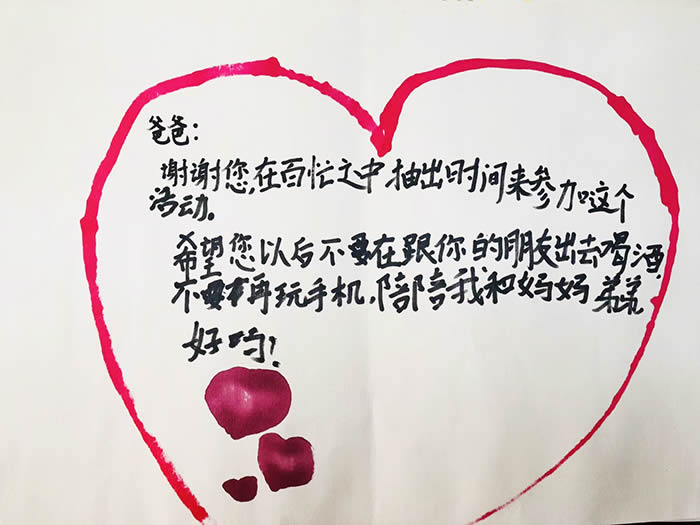 爸爸:
谢谢您,在百忙之中抽出时间来参加这个
活动。
希望您以后不要在跟你的朋友出去喝酒,
不要再玩手机,陪陪我和妈妈
好吗!